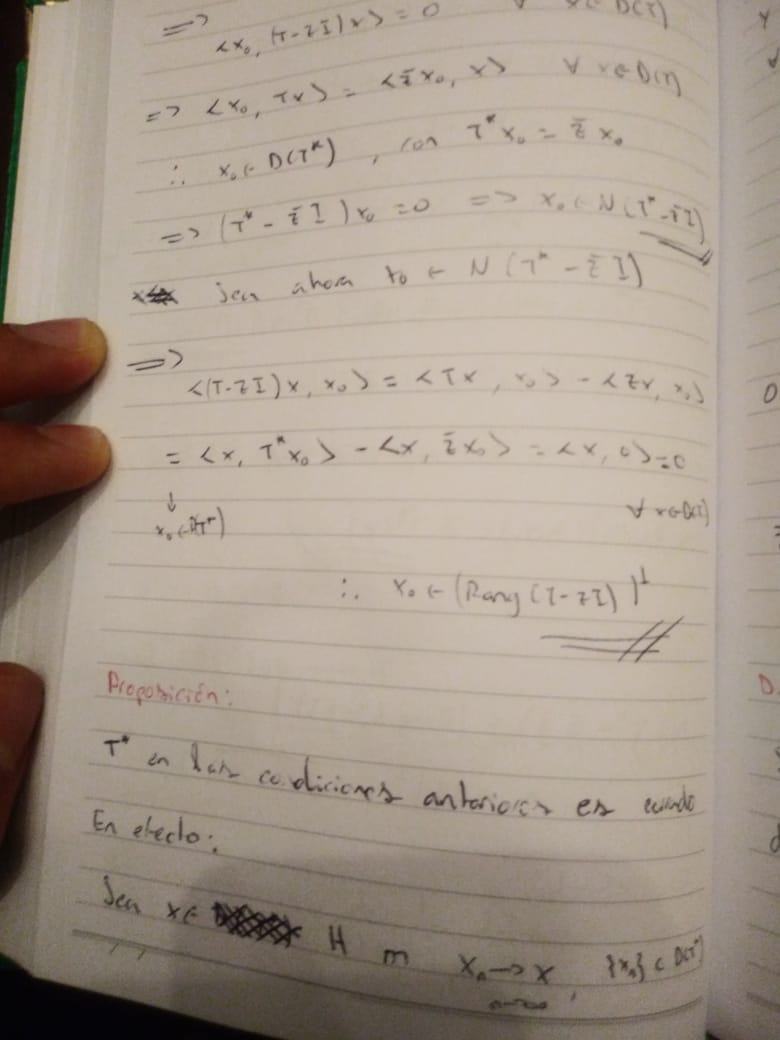 => <x₀, (T-zI)x> = 0 ∀ x∈D(T)
=> <x₀, Tx> = <z̄x₀, x> ∀ x∈D(T)
∴ x₀∈D(T*), con T*x₀ = z̄x₀
=> (T* - z̄I)x₀ = 0 => x₀∈N(T*-z̄I)
Sea ahora x₀ ∈ N(T* - z̄I)
=>
<(T-zI)x, x₀> = <Tx, x₀> - <zx, x₀>
= <x, T*x₀> - <x, z̄x₀> = <x, 0> = 0
↓ ∀ x∈D(T)
x₀∈D(T*)
∴ x₀ ∈ (Rang(T-zI))^⊥
Proposición:
T* en las condiciones anteriores es cerrado
En efecto:
Sea x∈ H xₙ→x, {xₙ}⊂D(T*)
n→∞